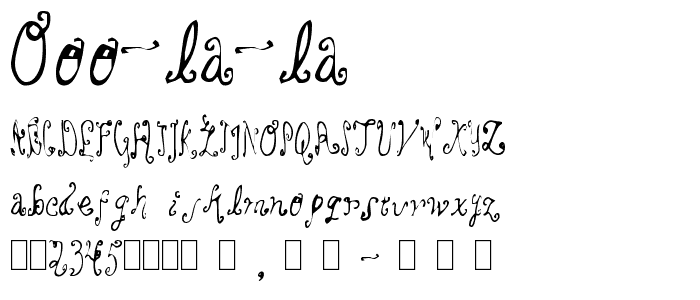 Ooo-la-la
ABCDEFGHIJKLMNOPQRSTUVWXYZ
abcdefgh ijklmnopqrstuvwxyz
2345 , -